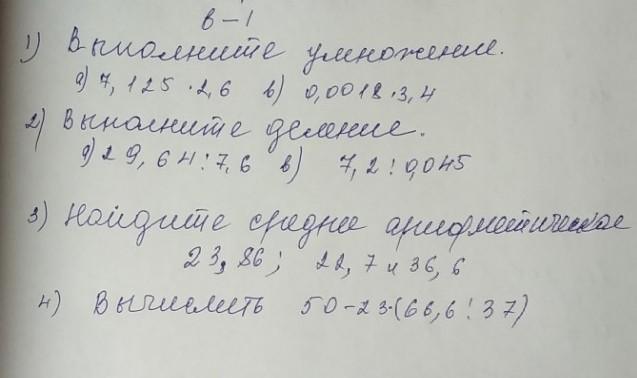 в-1
1) Выполните умножение.
а) 7,125 · 2,6 в) 0,0018 · 3,4
2) Выполните деление.
а) 29,64 : 7,6 в) 7,2 : 0,045
3) Найдите средне арифметическое
23,86; 22,7 и 36,6
4) Вычислить 50-23·(66,6:37)